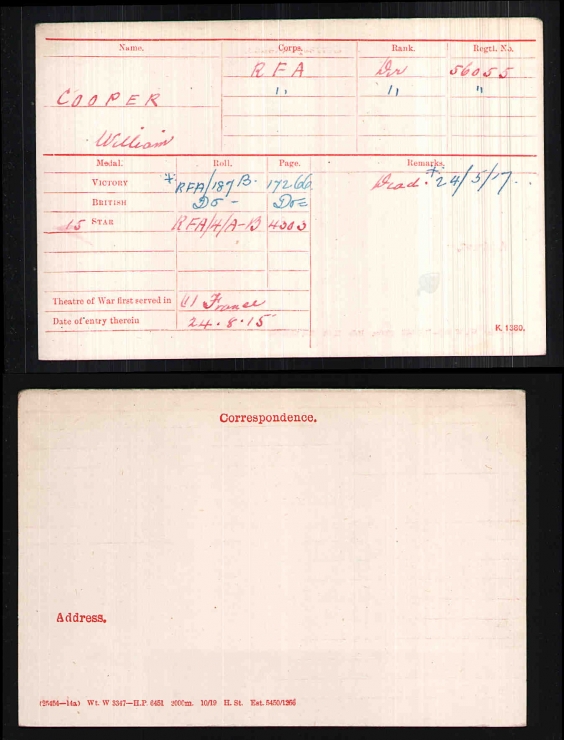 Name. Corps. Rank. Regtl. No.
R F A Dvr 56055
COOPER " " "
William
Medal. Roll. Page. Remarks.
VICTORY RFA/187B. 17266. Dead. 24/5/17.
BRITISH Do - Do =
15 STAR RFA/4/A-B 4303
Theatre of War first served in (1) France
Date of entry therein 24.8.15
K. 1380.
Correspondence.
Address.
(25454—14a) Wt. W 3347—H.P. 6451 2000m. 10/19 H. St. Est. 5450/1266